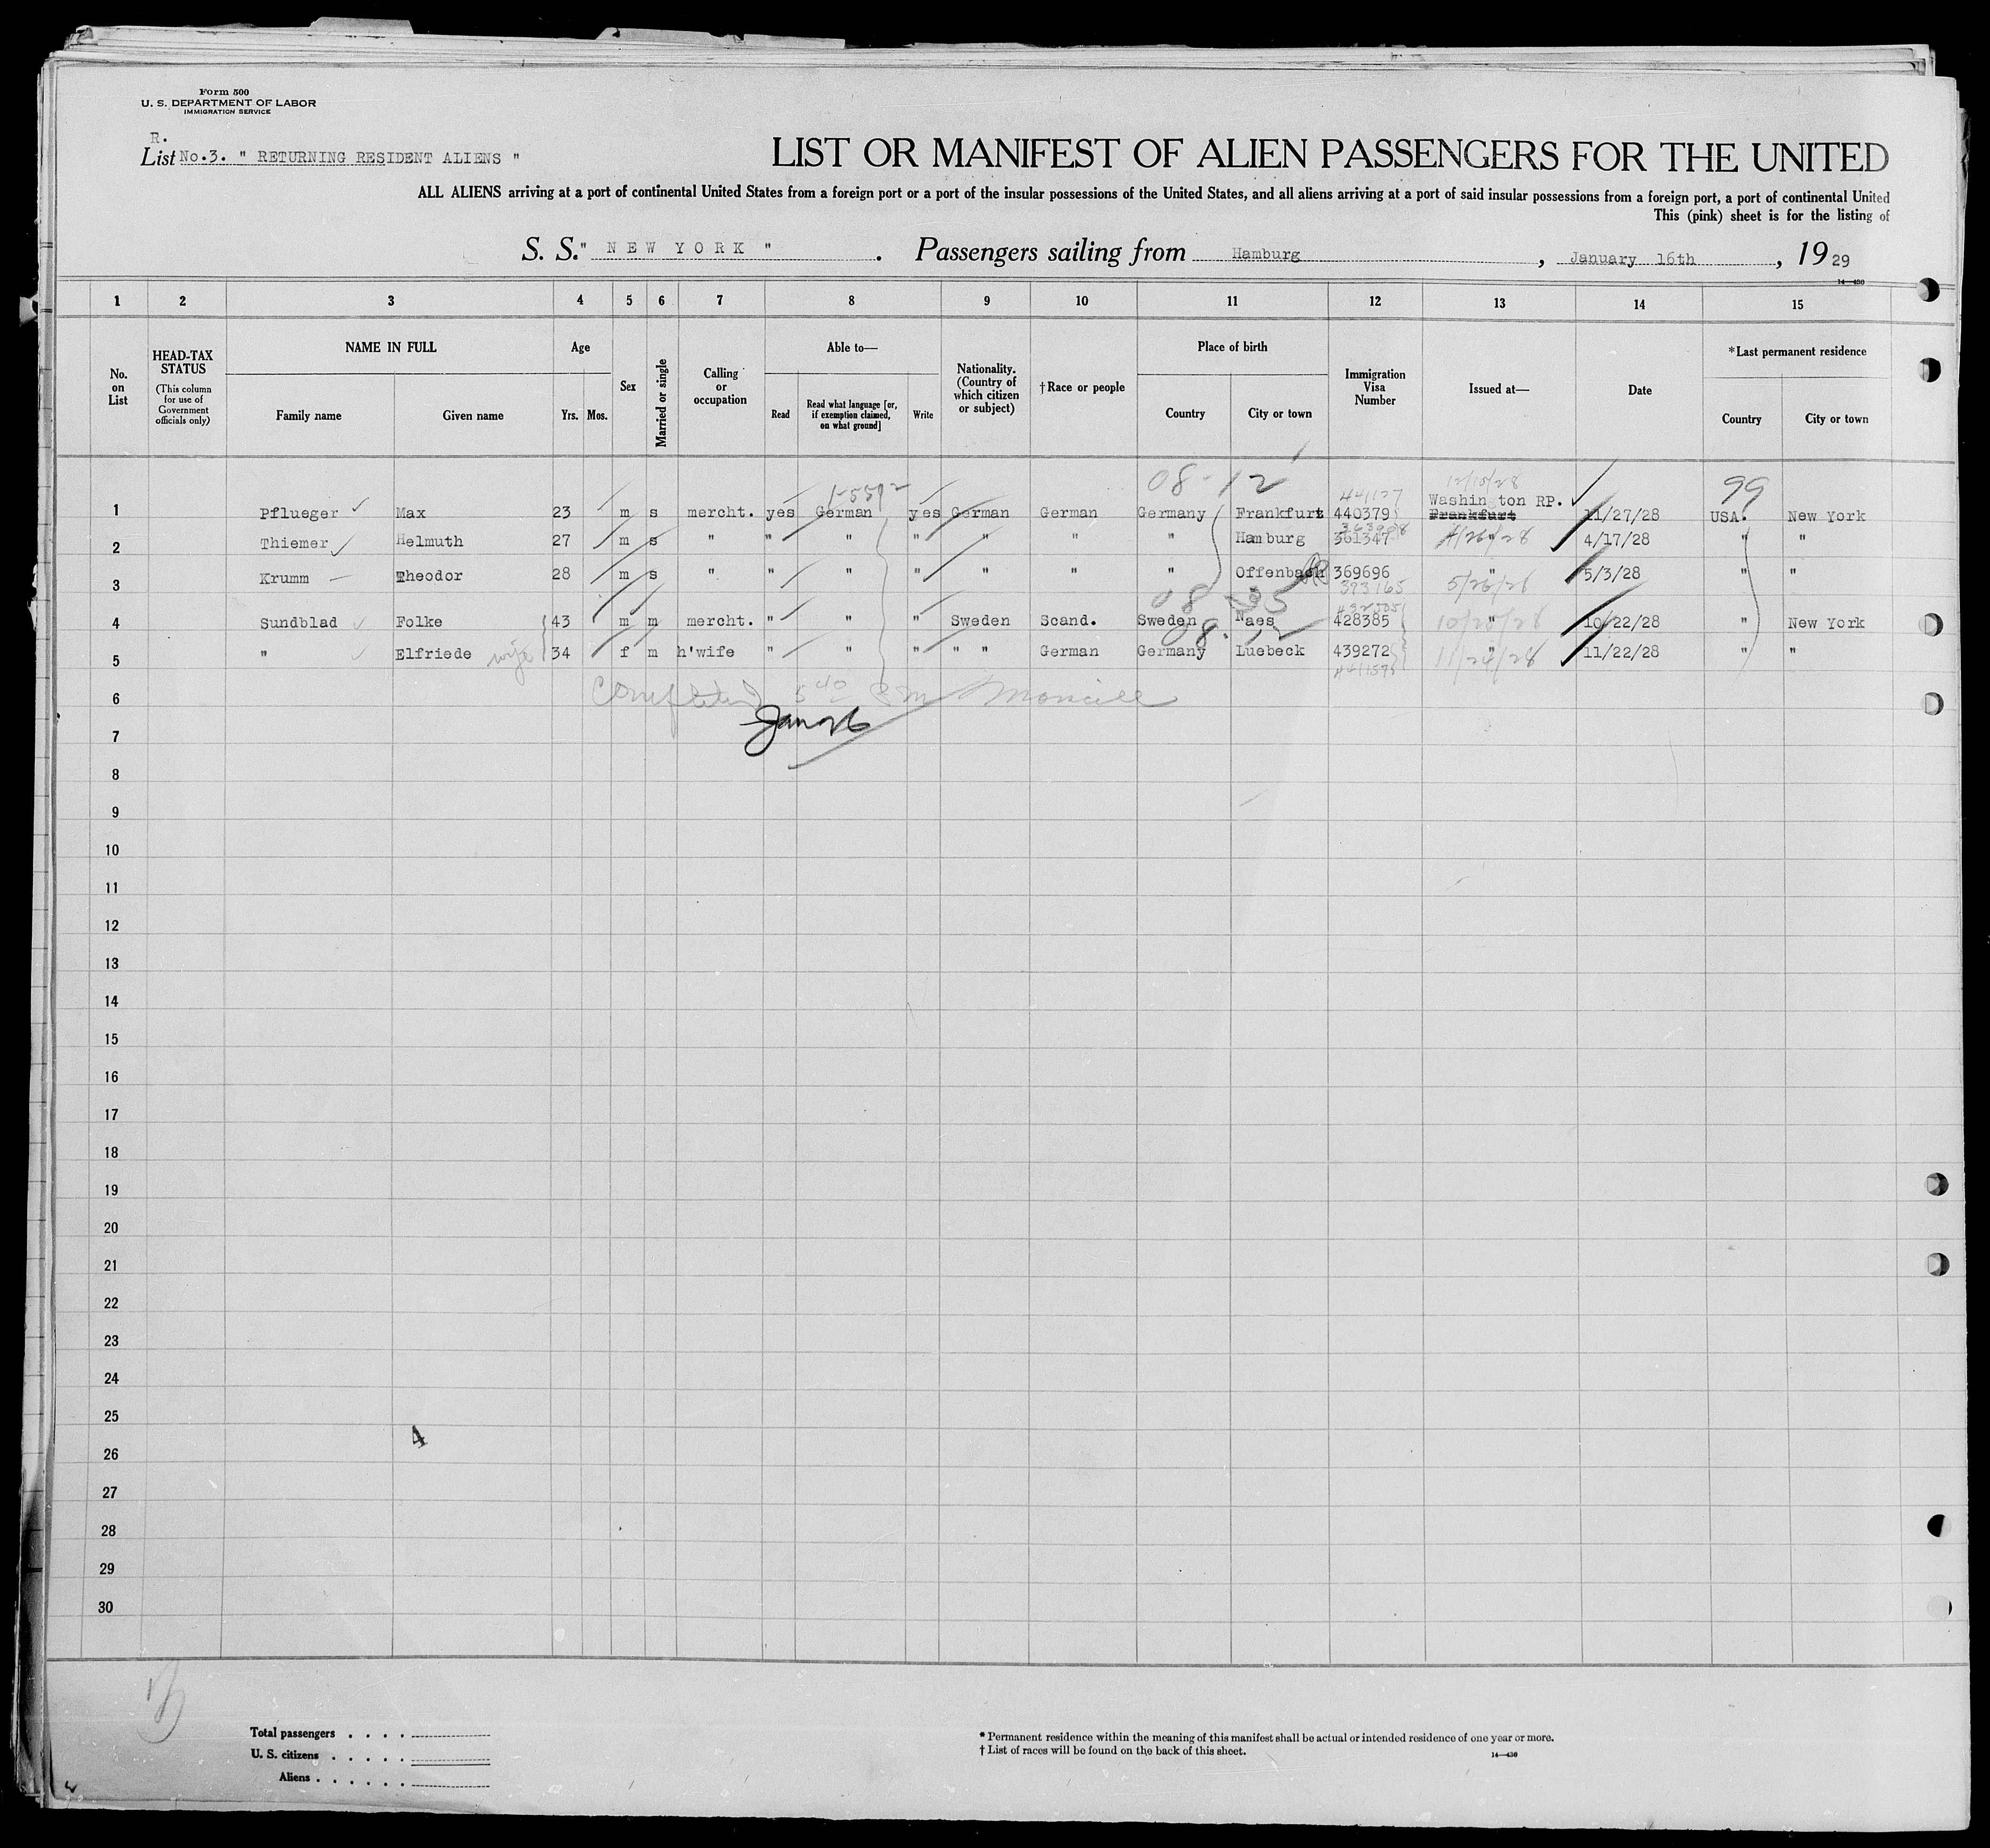 Form 500
U. S. DEPARTMENT OF LABOR
IMMIGRATION SERVICE
R.
List No.3. " RETURNING RESIDENT ALIENS "
LIST OR MANIFEST OF ALIEN PASSENGERS FOR THE UNITED
ALL ALIENS arriving at a port of continental United States from a foreign port or a port of the insular possessions of the United States, and all aliens arriving at a port of said insular possessions from a foreign port, a port of continental United
This (pink) sheet is for the listing of
S. S. " NEW YORK " . Passengers sailing from Hamburg , January 16th , 19 29
14—430
1 2 3 4 5 6 7 8 9 10 11 12 13 14 15
No. on List
HEAD-TAX STATUS (This column for use of Government officials only)
NAME IN FULL
Family name Given name
Age
Yrs. Mos.
Sex
Married or single
Calling or occupation
Able to—
Read Read what language [or, if exemption claimed, on what ground] Write
Nationality. (Country of which citizen or subject)
†Race or people
Place of birth
Country City or town
Immigration Visa Number
Issued at—
Date
*Last permanent residence
Country City or town
08-12 12/15/28 99
441127 Washin ton RP.
1 Pflueger Max 23 m s mercht. yes German yes German German Germany Frankfurt 440379 Frankfurt 11/27/28 USA. New York
2 Thiemer Helmuth 27 m s " " " " " " " Hamburg 361347 4/26/28 " 4/17/28 " "
3 Krumm Theodor 28 m s " " " " " " " Offenbach 369696 " 5/3/28 " "
373165 5/26/28
08
4 Sundblad Folke 43 m m mercht. " " " Sweden Scand. Sweden Naes 428385 10/25/28 " 10/22/28 " New York
08.
5 " Elfriede wife 34 f m h'wife " " " " " German Germany Luebeck 439272 11/24/28 " 11/22/28 " "
6 Completed 5 40 PM
7
8
9
10
11
12
13
14
15
16
17
18
19
20
21
22
23
24
25
4
26
27
28
29
30
Total passengers . . . .
U. S. citizens . . . . .
Aliens . . . . . .
* Permanent residence within the meaning of this manifest shall be actual or intended residence of one year or more.
† List of races will be found on the back of this sheet.
14—430